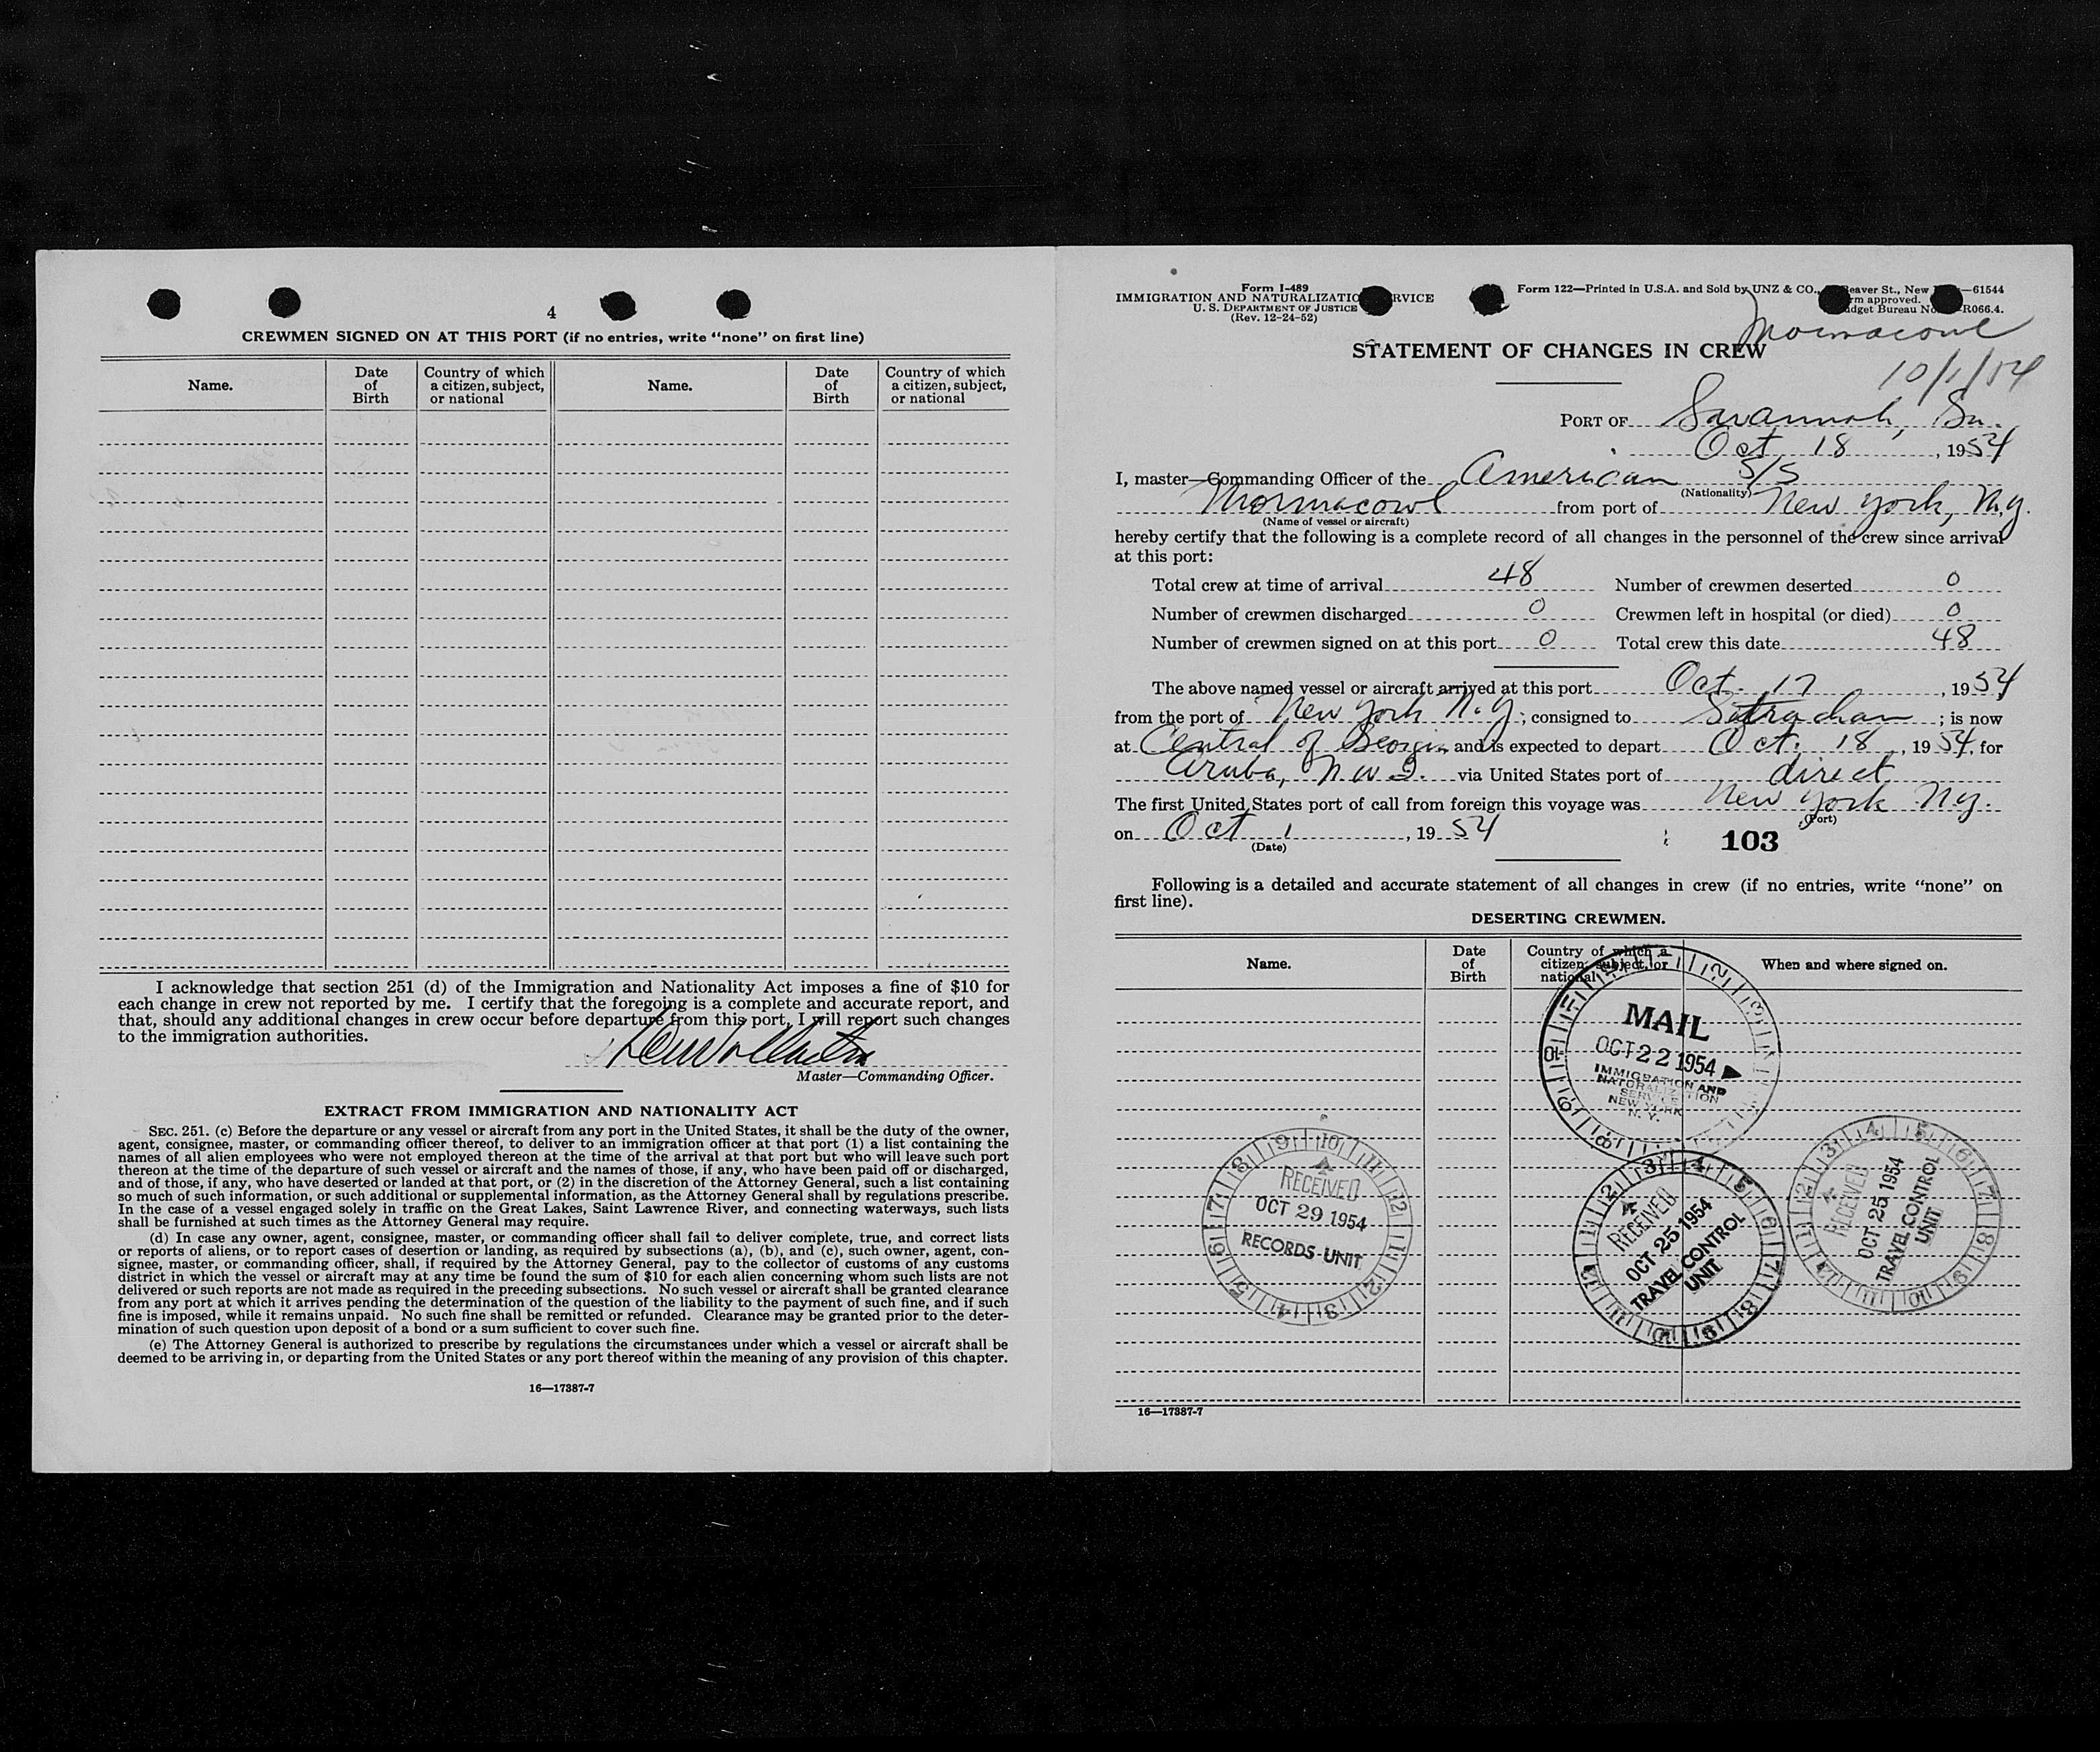 4
CREWMEN SIGNED ON AT THIS PORT (if no entries, write "none" on first line)
Name. Date of Birth Country of which a citizen, subject, or national Name. Date of Birth Country of which a citizen, subject, or national
I acknowledge that section 251 (d) of the Immigration and Nationality Act imposes a fine of $10 for
each change in crew not reported by me. I certify that the foregoing is a complete and accurate report, and
that, should any additional changes in crew occur before departure from this port, I will report such changes
to the immigration authorities.
Master—Commanding Officer.
EXTRACT FROM IMMIGRATION AND NATIONALITY ACT
SEC. 251. (c) Before the departure or any vessel or aircraft from any port in the United States, it shall be the duty of the owner,
agent, consignee, master, or commanding officer thereof, to deliver to an immigration officer at that port (1) a list containing the
names of all alien employees who were not employed thereon at the time of the arrival at that port but who will leave such port
thereon at the time of the departure of such vessel or aircraft and the names of those, if any, who have been paid off or discharged,
and of those, if any, who have deserted or landed at that port, or (2) in the discretion of the Attorney General, such a list containing
so much of such information, or such additional or supplemental information, as the Attorney General shall by regulations prescribe.
In the case of a vessel engaged solely in traffic on the Great Lakes, Saint Lawrence River, and connecting waterways, such lists
shall be furnished at such times as the Attorney General may require.
(d) In case any owner, agent, consignee, master, or commanding officer shall fail to deliver complete, true, and correct lists
or reports of aliens, or to report cases of desertion or landing, as required by subsections (a), (b), and (c), such owner, agent, con-
signee, master, or commanding officer, shall, if required by the Attorney General, pay to the collector of customs of any customs
district in which the vessel or aircraft may at any time be found the sum of $10 for each alien concerning whom such lists are not
delivered or such reports are not made as required in the preceding subsections. No such vessel or aircraft shall be granted clearance
from any port at which it arrives pending the determination of the question of the liability to the payment of such fine, and if such
fine is imposed, while it remains unpaid. No such fine shall be remitted or refunded. Clearance may be granted prior to the deter-
mination of such question upon deposit of a bond or a sum sufficient to cover such fine.
(e) The Attorney General is authorized to prescribe by regulations the circumstances under which a vessel or aircraft shall be
deemed to be arriving in, or departing from the United States or any port thereof within the meaning of any provision of this chapter.
16—17387-7
Form I-489
IMMIGRATION AND NATURALIZATIO RVICE
U. S. DEPARTMENT OF JUSTICE
(Rev. 12-24-52)
Form 122—Printed in U.S.A. and Sold by UNZ & CO., eaver St., New —61544
rm approved.
dget Bureau No. R066.4.
Mormacowl
STATEMENT OF CHANGES IN CREW
10/1/54
PORT OF Savannah, Ga.
Oct 18, 1954
I, master—Commanding Officer of the American S/S
(Nationality)
Mormacowl from port of New York, N.Y.
(Name of vessel or aircraft)
hereby certify that the following is a complete record of all changes in the personnel of the crew since arrival
at this port:
Total crew at time of arrival 48 Number of crewmen deserted 0
Number of crewmen discharged 0 Crewmen left in hospital (or died) 0
Number of crewmen signed on at this port 0 Total crew this date 48
The above named vessel or aircraft arrived at this port Oct. 17, 1954
from the port of New York N.Y.; consigned to Strachan; is now
at Central of Georgia and is expected to depart Oct. 18, 1954, for
Aruba, N W I. via United States port of direct
The first United States port of call from foreign this voyage was New York N.Y.
(Port)
on Oct 1, 1954
(Date)
103
Following is a detailed and accurate statement of all changes in crew (if no entries, write "none" on
first line).
DESERTING CREWMEN.
Name. Date of Birth Country of which a citizen, subject, or national When and where signed on.
MAIL
OCT 22 1954
IMMIGRATION AND
NATURALIZATION
SERVICE
NEW YORK
N. Y.
RECEIVED
OCT 29 1954
RECORDS UNIT
RECEIVED
OCT 25 1954
TRAVEL CONTROL
UNIT
RECEIVED
OCT 25 1954
TRAVEL CONTROL
UNIT
16—17387-7